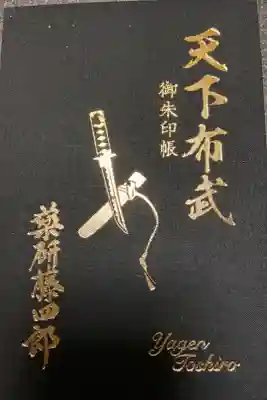 天下布武
御朱印帳
薬研藤四郎
Yagen
Toshiro